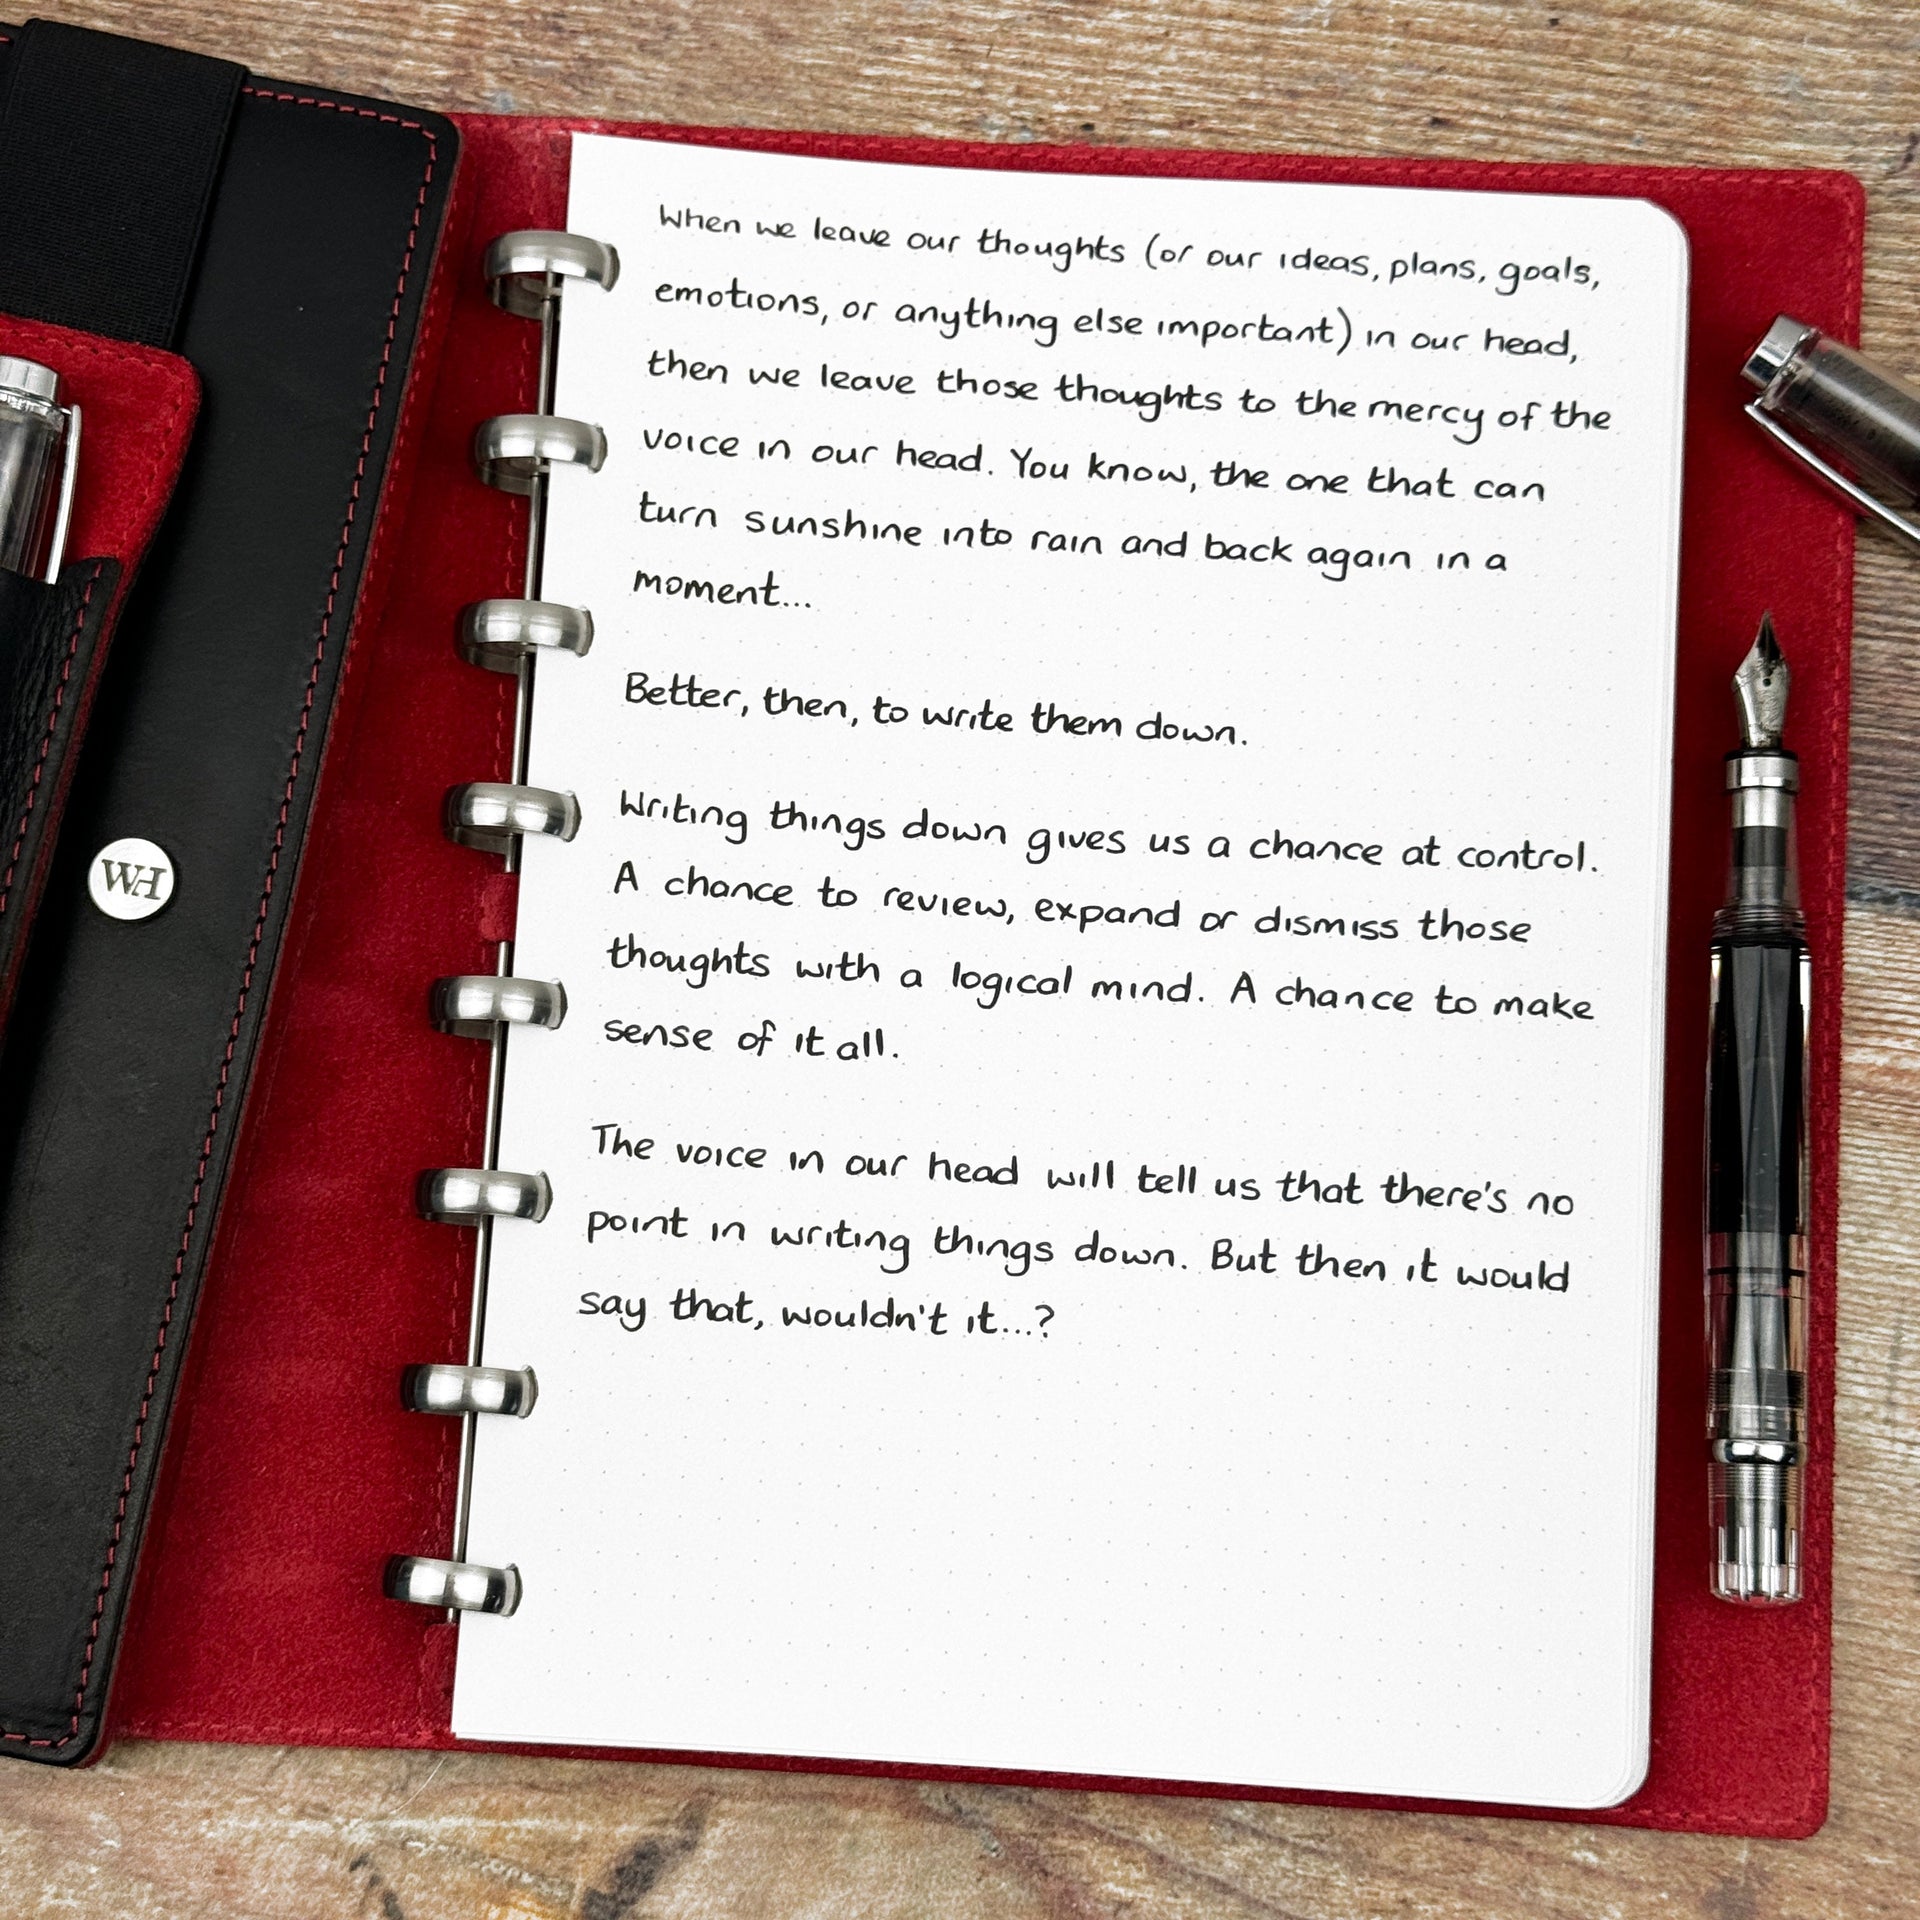 When we leave our thoughts (or our ideas, plans, goals,
emotions, or anything else important) in our head,
then we leave those thoughts to the mercy of the
voice in our head. You know, the one that can
turn sunshine into rain and back again in a
moment...
Better, then, to write them down.
Writing things down gives us a chance at control.
A chance to review, expand or dismiss those
thoughts with a logical mind. A chance to make
sense of it all.
The voice in our head will tell us that there's no
point in writing things down. But then it would
say that, wouldn't it...?
WH